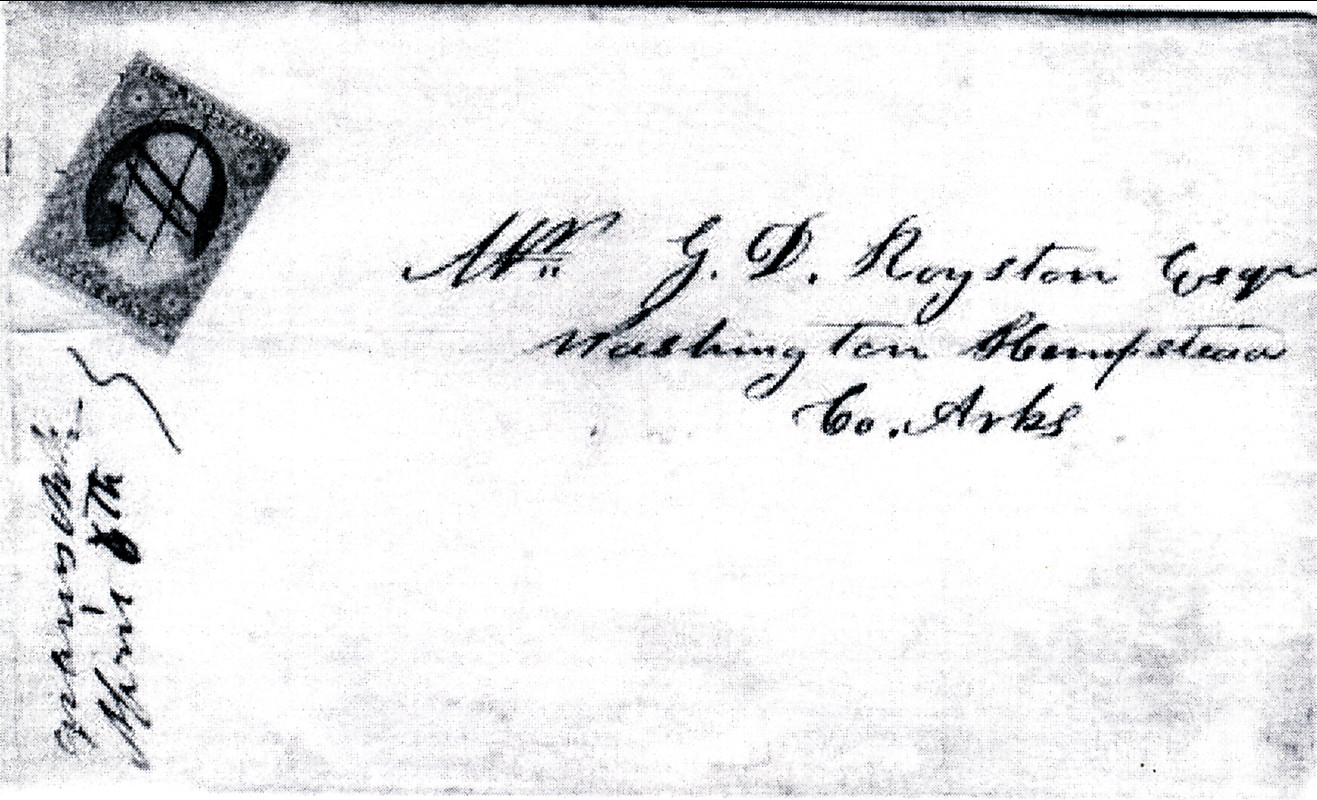 Mr. G. D. Royston Esqr
Washington Hempstead
Co. Arks
April 8th